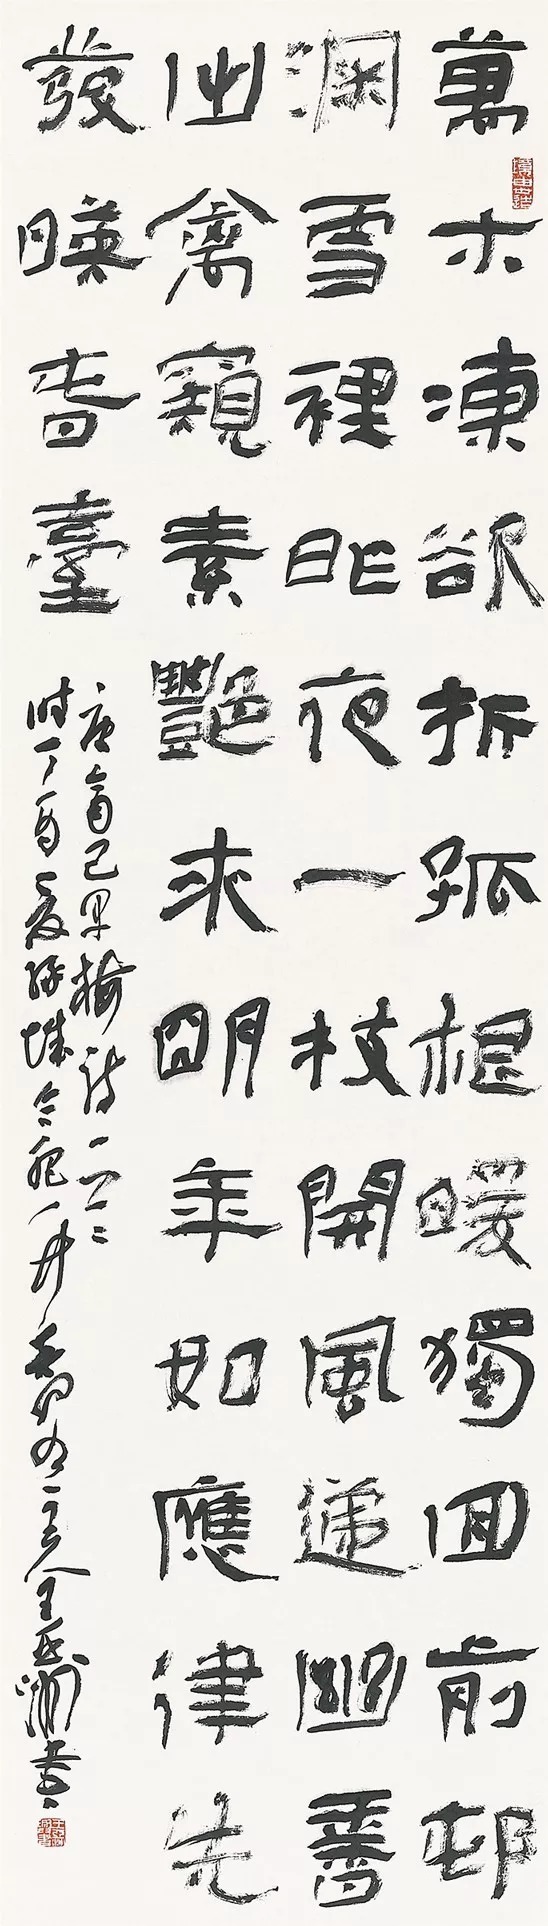 萬木凍欲折孤根暖獨回前邨
深雪裡昨夜一枝開風遞幽香
出禽窺素艷來明年如應律先
發暎春臺
唐齊己早梅詩一首
时丁酉夏於 主人王 書